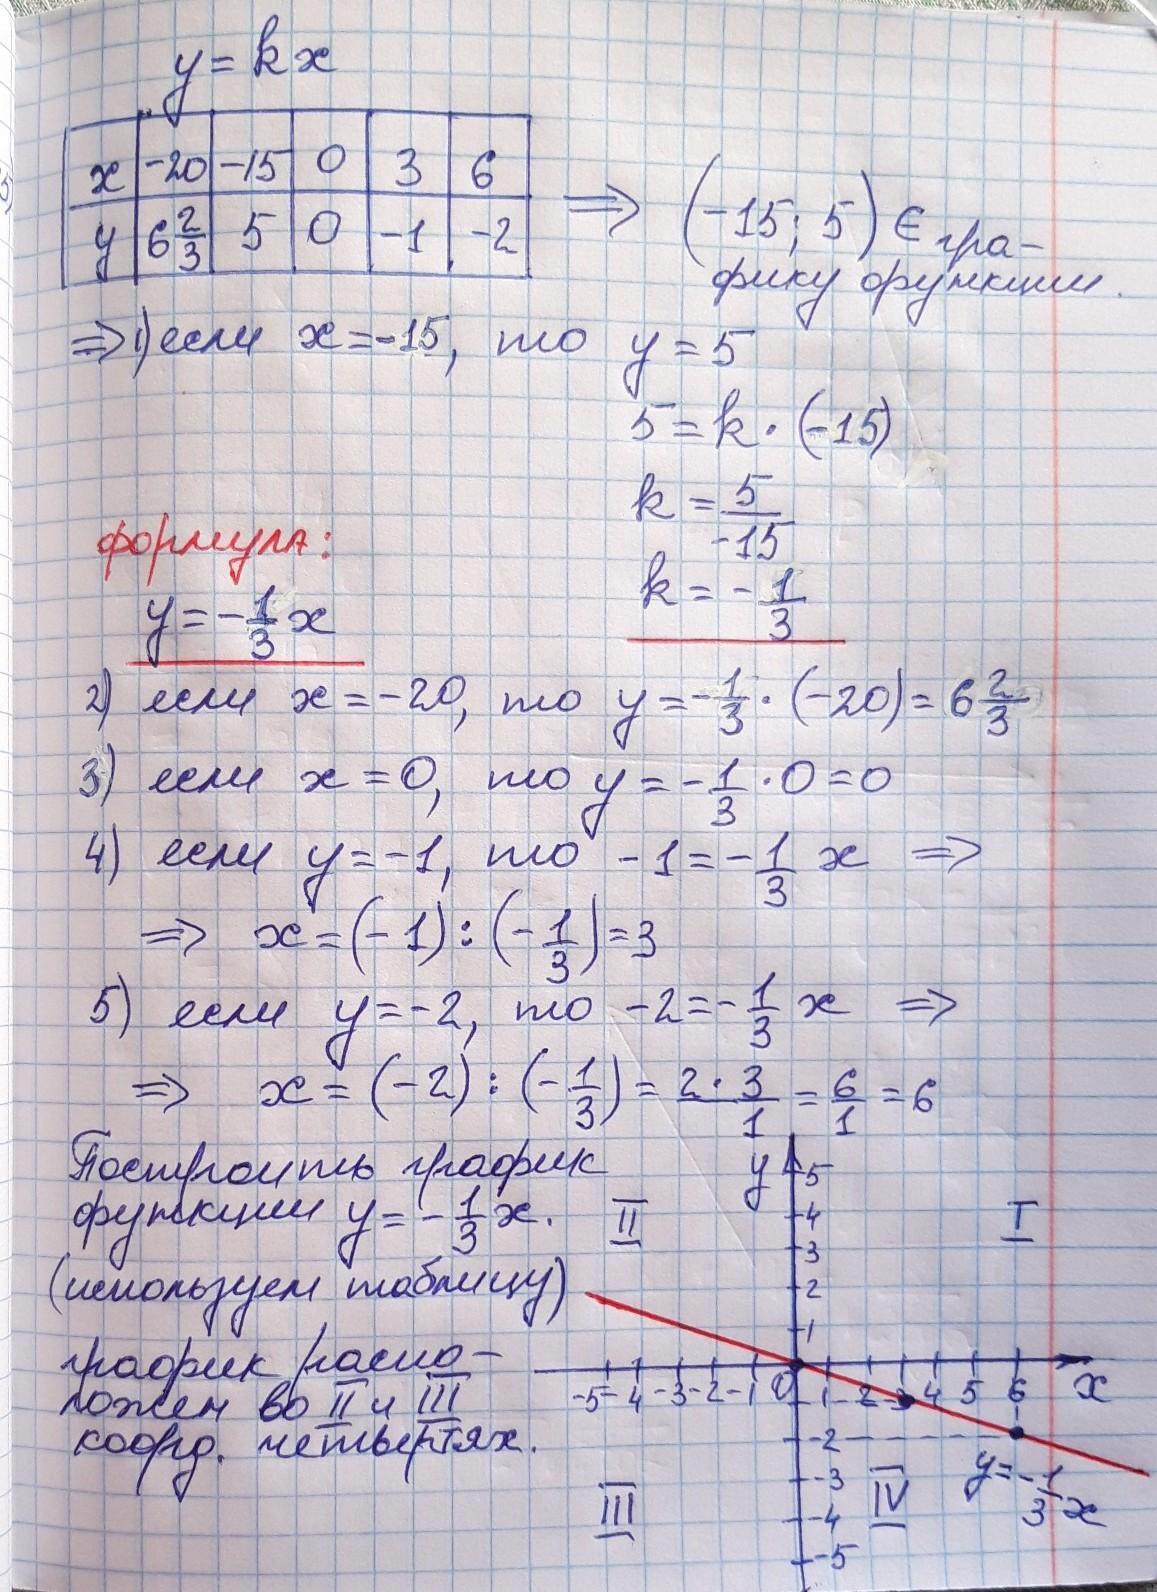 y = kx
x | -20 | -15 | 0 | 3 | 6
y | 6 2/3 | 5 | 0 | -1 | -2
⇒ (-15; 5) ∈ гра-
фику функции.
⇒ 1) если x = -15, то y = 5
5 = k · (-15)
k = 5/-15
k = -1/3
формула:
y = -1/3 x
2) если x = -20, то y = -1/3 · (-20) = 6 2/3
3) если x = 0, то y = -1/3 · 0 = 0
4) если y = -1, то -1 = -1/3 x ⇒
⇒ x = (-1) : (-1/3) = 3
5) если y = -2, то -2 = -1/3 x ⇒
⇒ x = (-2) : (-1/3) = 2·3/1 = 6/1 = 6
Построить график
функции y = -1/3 x.
(используем таблицу)
график распо-
ложен во II и III
коорд. четвертях.
y
5
4
3
2
1
II
I
-5 -4 -3 -2 -1 0 1 2 3 4 5 6 x
-1
-2
-3
-4
-5
III
IV
y = -1/3 x